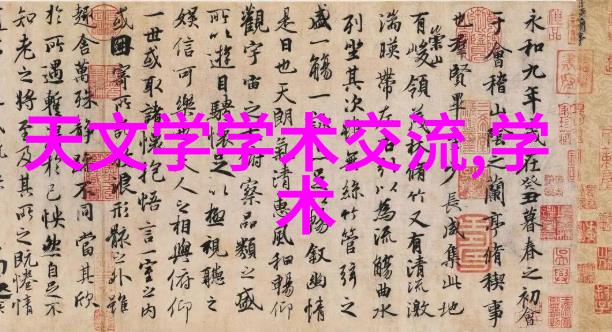 天文学学术交流,学
术
永和九年歲在癸丑暮春之初會
于會稽山陰之蘭亭脩稧事
也羣賢畢少長咸集此地
有崇山峻領茂林脩竹又有清流激
湍暎帶左右引以為流觴曲水
列坐其次雖無絲竹管弦之
盛一觴一足以暢敘幽情
是日也天朗氣清惠風和暢仰
觀宇宙之俯察品類之盛
所以遊目騁懷足以極視聽之
娛信可樂人之相與俯仰
一世或取諸懷抱悟言一室之內
或因寄所浪形骸之外雖
趣舍萬殊靜不同當其欣
於所遇暫得於己怏然自足不
知老之將至及其所之既惓情